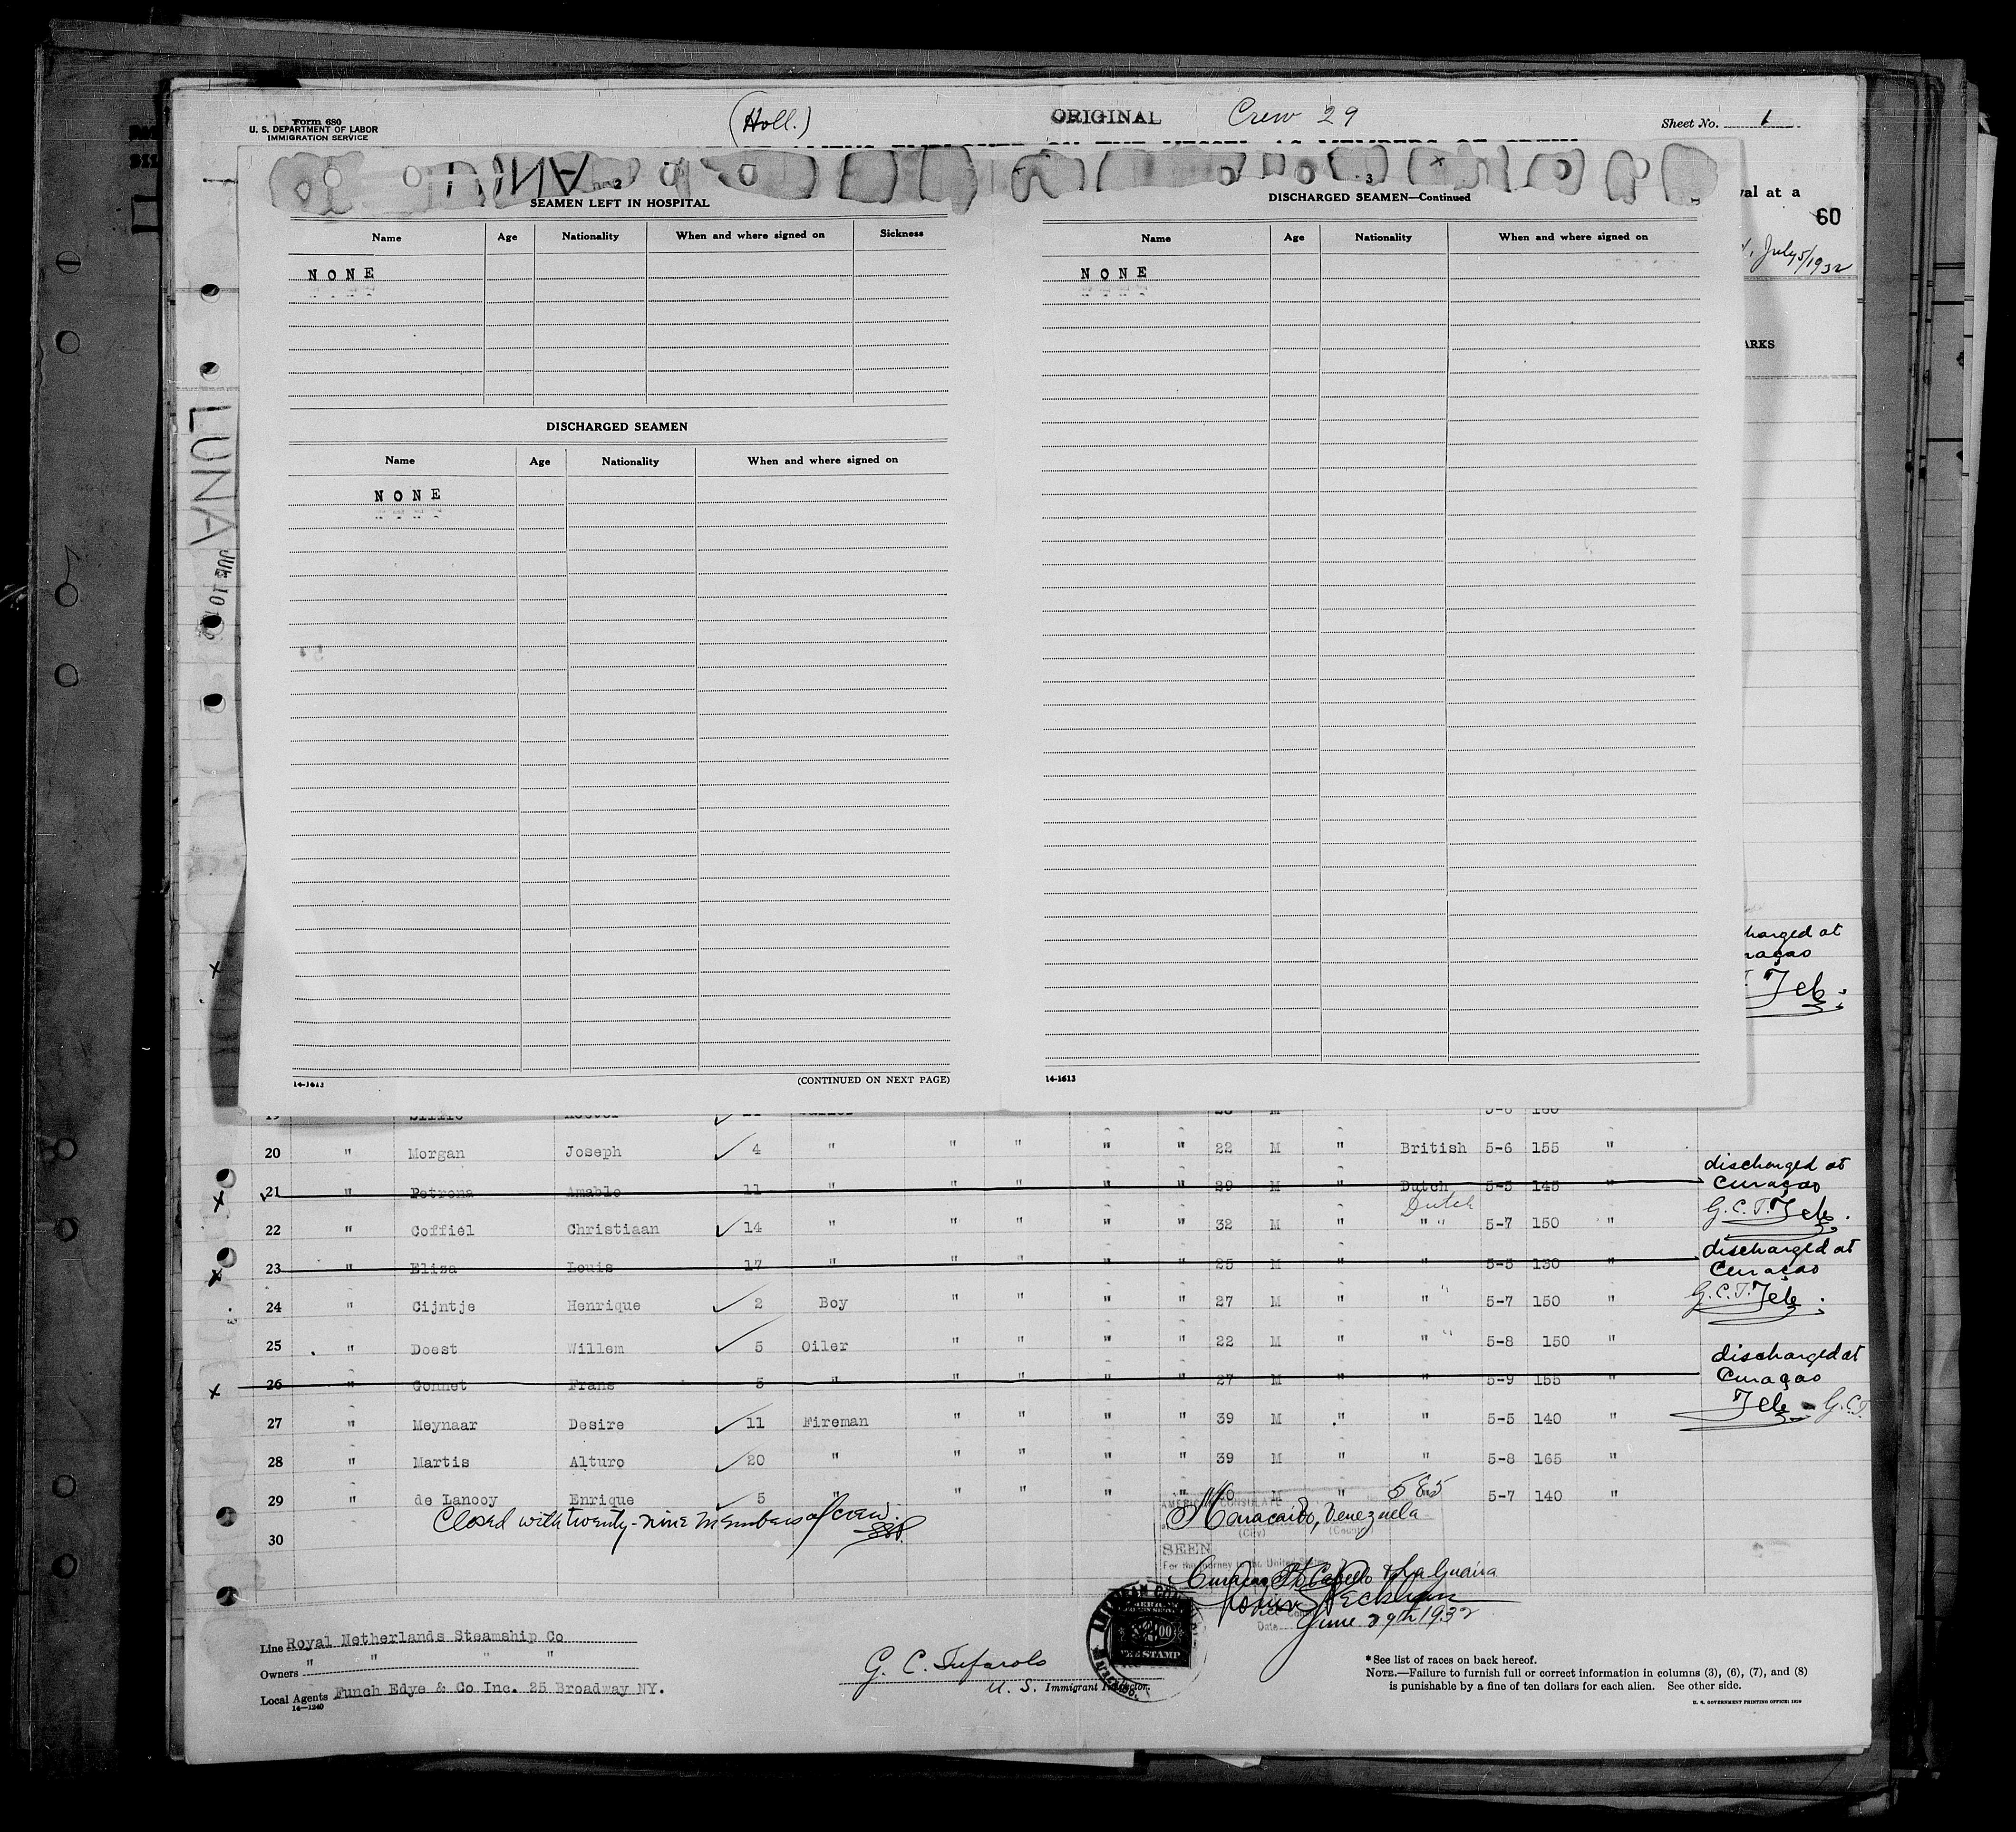 Form 680
U. S. DEPARTMENT OF LABOR
IMMIGRATION SERVICE
(Holl.)
ORIGINAL
Crew 29
Sheet No. 1
val at a
60
July 5/1932
ARKS
LUNA
2
SEAMEN LEFT IN HOSPITAL
Name Age Nationality When and where signed on Sickness
NONE
DISCHARGED SEAMEN
Name Age Nationality When and where signed on
NONE
14-1613
(CONTINUED ON NEXT PAGE)
3
DISCHARGED SEAMEN—Continued
Name Age Nationality When and where signed on
NONE
14-1613
charged at
raçao
20 " Morgan Joseph 4 " " " " " 22 M " British 5-6 155 "
21 " Petrona Amablo 11 " " " " " 29 M " Dutch 5-5 145 " discharged at Curaçao
Dutch
22 " Coffiel Christiaan 14 " " " " " 32 M " " " 5-7 150 " G. C. T.
23 " Eliza Louis 17 " " " " " 25 M " " 5-5 130 " discharged at Curaçao
24 " Cijntje Henrique 2 Boy " " " " 27 M " " " 5-7 150 " G. C. T.
25 " Doest Willem 5 Oiler " " " " 22 M " " " 5-8 150 "
26 " Gonnet Frans 5 " " " " " 27 M " " 5-9 155 " discharged at Curaçao
27 " Meynaar Desire 11 Fireman " " " " 39 M " " 5-5 140 " G. C. T.
28 " Martis Alturo 20 " " " " " 39 M " " 5-8 165 "
29 " de Lanooy Enrique 5 " " " " " " 5-7 140 "
585
Closed with twenty-nine members of crew.
30
AMERICAN CONSULATE
Maracaibo, Venezuela
(City) (Country)
SEEN
For the journey to the United States
Curacao Pto Cabello & La Guaira
Date June 29th 1932
00
FEE STAMP
Line Royal Netherlands Steamship Co
Owners " " " "
Local Agents Funch Edye & Co Inc. 25 Broadway NY.
14-1240
G. C. Tufarolo
U. S. Immigrant Inspector.
*See list of races on back hereof.
NOTE.—Failure to furnish full or correct information in columns (3), (6), (7), and (8)
is punishable by a fine of ten dollars for each alien. See other side.
U. S. GOVERNMENT PRINTING OFFICE: 1929